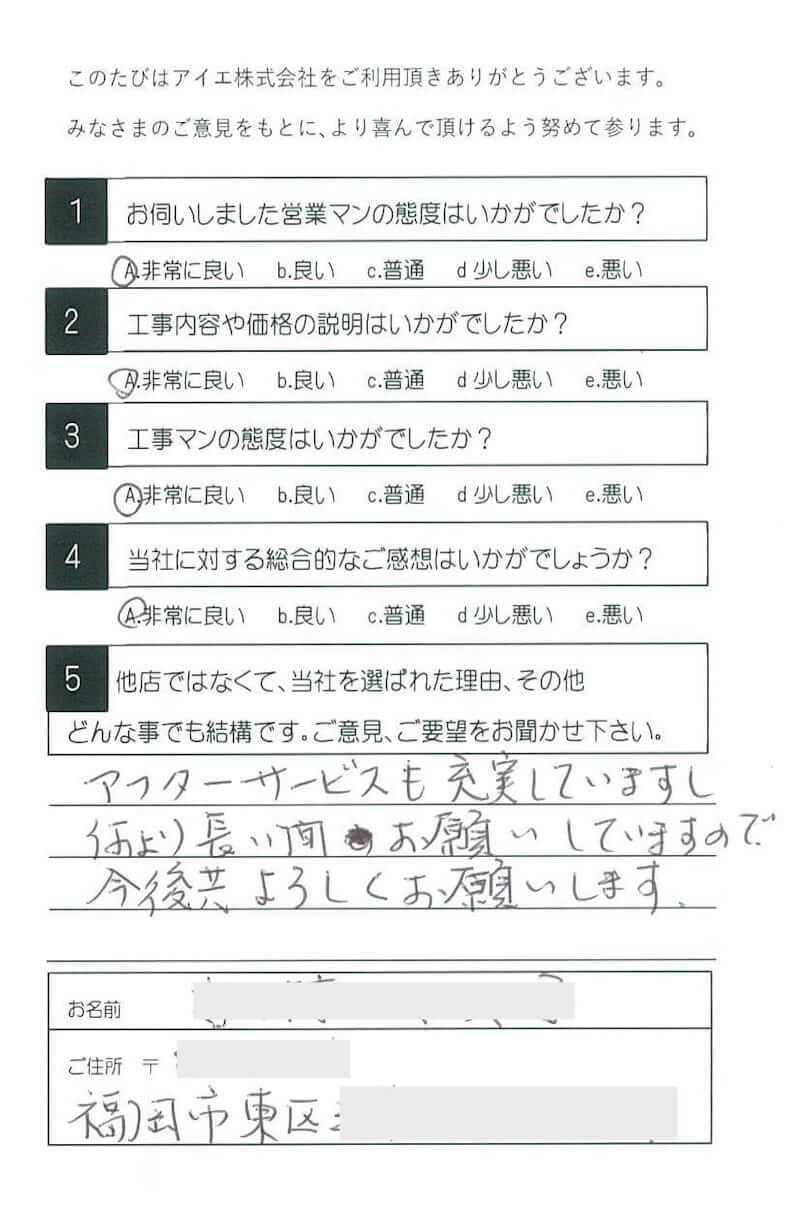 このたびはアイエ株式会社をご利用頂きありがとうございます。
みなさまのご意見をもとに、より喜んで頂けるよう努めて参ります。
1 お伺いしました営業マンの態度はいかがでしたか?
A.非常に良い b.良い c.普通 d 少し悪い e.悪い
2 工事内容や価格の説明はいかがでしたか?
A.非常に良い b.良い c.普通 d 少し悪い e.悪い
3 工事マンの態度はいかがでしたか?
A.非常に良い b.良い c.普通 d 少し悪い e.悪い
4 当社に対する総合的なご感想はいかがでしょうか?
A.非常に良い b.良い c.普通 d 少し悪い e.悪い
5 他店ではなくて、当社を選ばれた理由、その他
どんな事でも結構です。ご意見、ご要望をお聞かせ下さい。
アフターサービスも充実していますし
何より長い間お願いしていますので
今後共よろしくお願いします。
お名前
ご住所 〒
福岡市東区